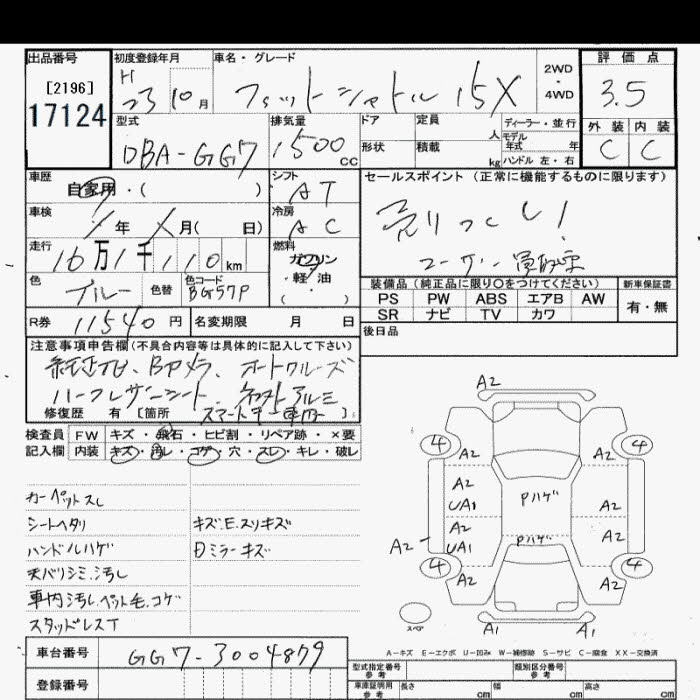 出品番号
[2196]
17124
初度登録年月
H 23 10 月
車名・グレード
フィットシャトル 15X
2WD
・
4WD
評価点
3.5
型式
DBA-GG7
排気量
1500 cc
ドア
形状
定員
人
積載
kg
ディーラー・並行
モデル
年式 年
ハンドル 左・右
外装 内装
C C
車歴
自家用・( )
シフト
AT
車検
年 月( 日)
冷房
AC
走行
16万1千110km
燃料
ガソリン
・軽・油
・( )
色
ブルー
色替
色コード
BG57P
R券 11540円
名変期限 月 日
セールスポイント (正常に機能するものに限ります)
売りつくし!
ユーザー買取車
装備品 (純正品に限り○をつけてください)
新車保証書
PS PW ABS エアB AW
SR ナビ TV カワ
有・無
後日品
注意事項申告欄(不具合内容等は具体的に記入して下さい)
純正ナビ、Bカメラ、オートクルーズ
ハーフレザーシート、社外アルミ
修復歴 有 [箇所 スマートキー ]
検査員
記入欄
FW キズ・飛石・ヒビ割・リペア跡・×要
内装 キズ・汚レ・コゲ・穴・スレ・キレ・破レ
カーペットスレ
シートヘタリ
ハンドルハゲ
天バリシミ、汚レ
車内汚レ、ペット毛、コゲ
スタッドレスT
キズ、E、スリキズ
Dミラーキズ
A2
4 4
A2 A2
A2
UA1
A2
UA1
A2
A2
A2
Pハゲ
Pハゲ
4 4
A2 A2
スペア
A1 A1
A-キズ E-エクボ U-凹み W-補修跡 S-サビ C-腐食 XX-交換済
車台番号
GG7-3004879
登録番号
型式指定番号
参考
類別区分番号
参考
車庫証明用
参考
長さ cm
幅 cm
高さ cm